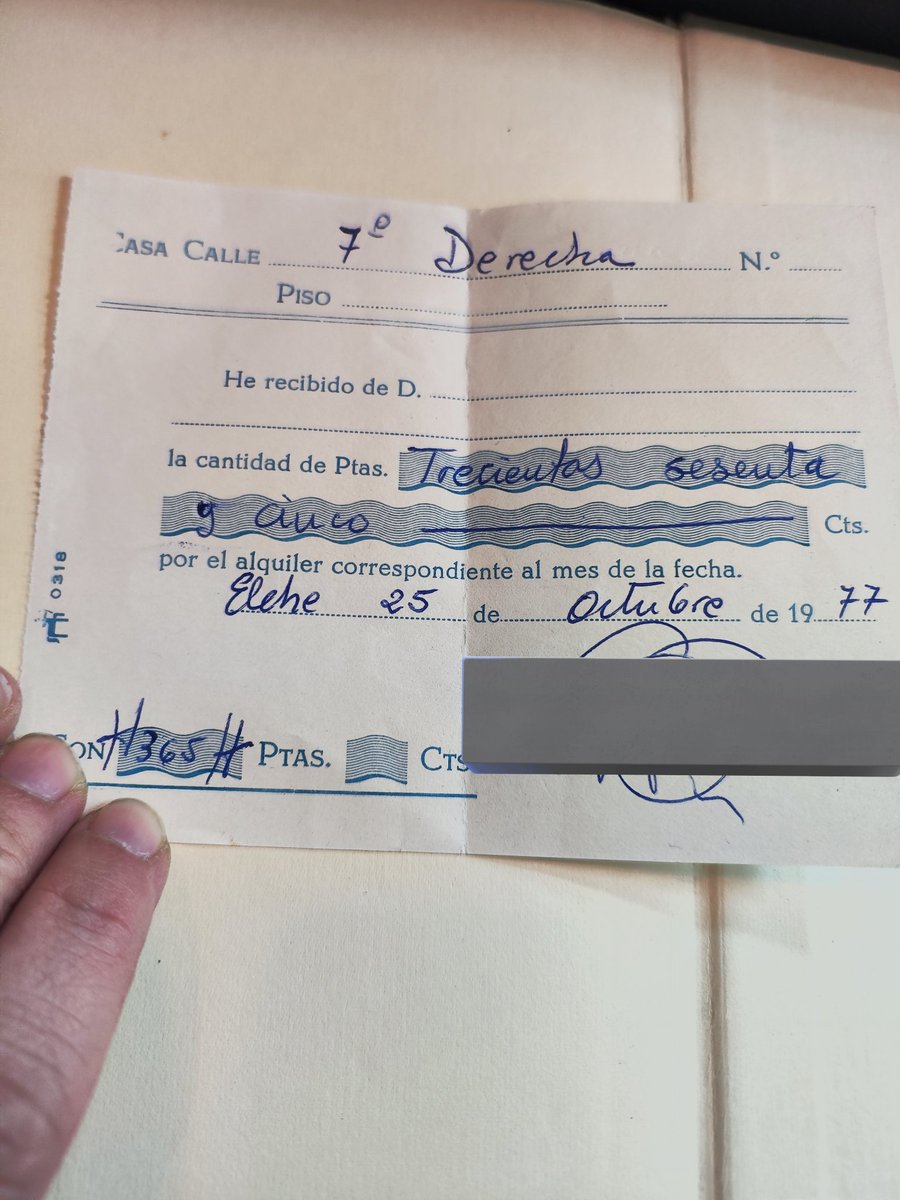 CASA CALLE 7º Derecha N.º
PISO
He recibido de D.
la cantidad de Ptas. Trecientas sesenta
y cinco Cts.
por el alquiler correspondiente al mes de la fecha.
Elche 25 de Octubre de 1977
CON #365# PTAS. CTS
TF 0318